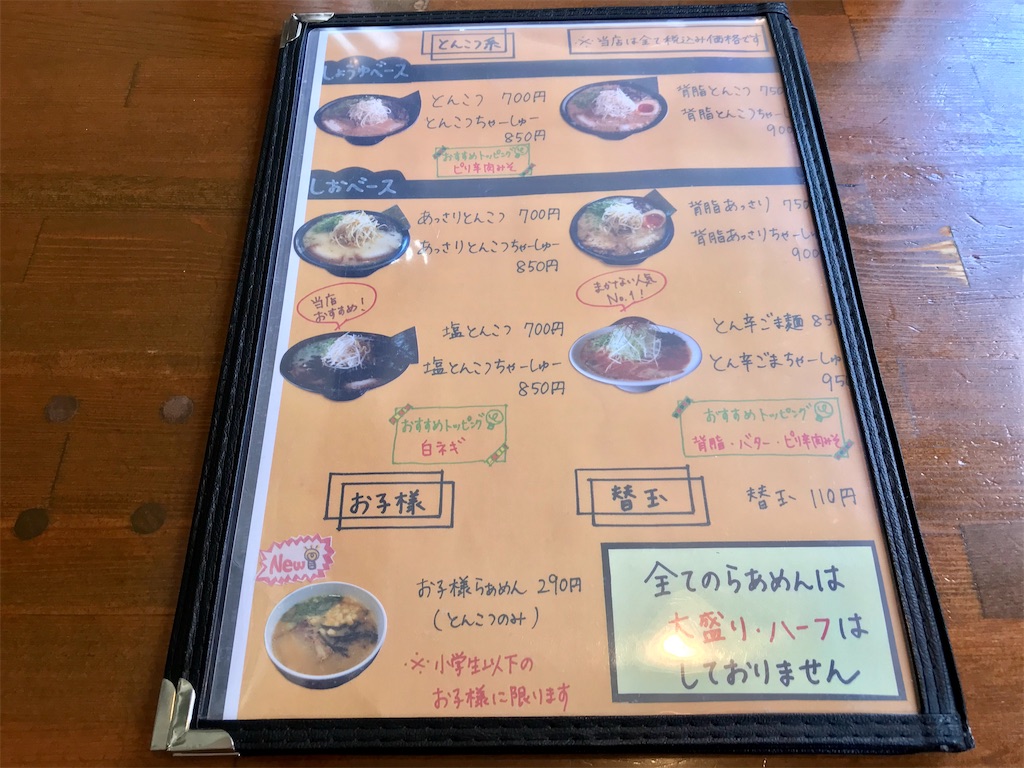 とんこつ系
※当店は全て税込み価格です
しょうゆベース
とんこつ 700円
とんこつちゃーしゅー
850円
おすすめトッピング
ピリ辛肉みそ
背脂とんこつ 750
背脂とんこつちゃーし
900
しおベース
あっさりとんこつ 700円
あっさりとんこつちゃーしゅー
850円
背脂あっさり 750
背脂あっさりちゃーし
900
当店
おすすめ!
塩とんこつ 700円
塩とんこつちゃーしゅー
850円
おすすめトッピング
白ネギ
まかない人気
No.1!
とん辛ごま麺 85
とん辛ごまちゃーしゅ
95
おすすめトッピング
背脂・バター・ピリ辛肉みそ
お子様
New
お子様らあめん 290円
(とんこつのみ)
※小学生以下の
お子様に限ります
替玉
替玉 110円
全てのらあめんは
大盛り・ハーフは
しておりません